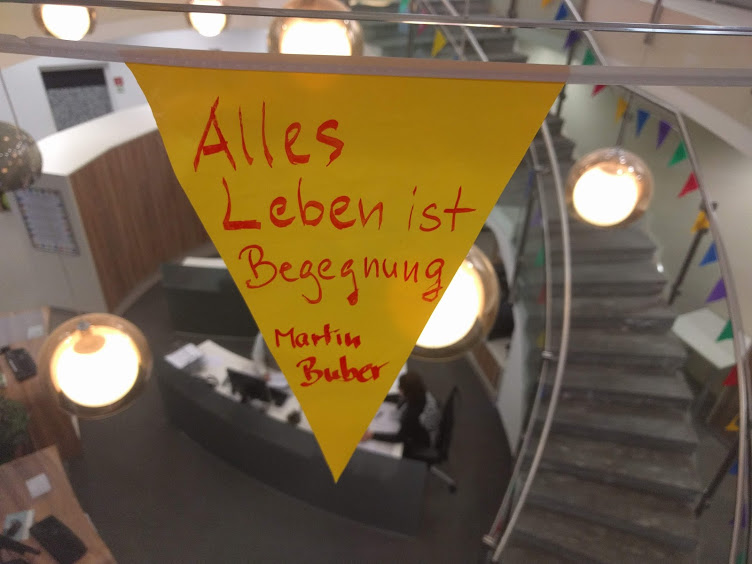 Alles
Leben ist
Begegnung
Martin
Buber